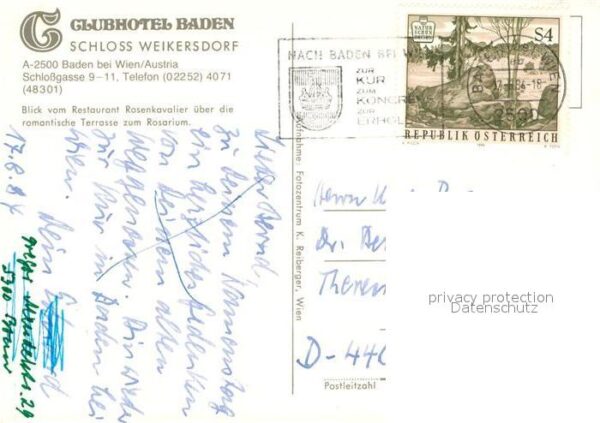 CLUBHOTEL BADEN
SCHLOSS WEIKERSDORF
A-2500 Baden bei Wien/Austria
Schloßgasse 9–11, Telefon (02252) 4071
(48301)
Blick vom Restaurant Rosenkavalier über die
romantische Terrasse zum Rosarium.
NACH BADEN BEI WIEN
ZUR
KUR
ZUM
KONGRE
ZUR
ERHOL
2500
S4
NATUR
SCHÜTZEN
REPUBLIK ÖSTERREICH
Aufnahme: Fotozentrum K. Reiberger, Wien
Lieber Bernd,
zu Deinem Namenstag
ein herzliches Gedenken
von Deinem alten
Weggenossen. Bin wieder
zur Kur in Baden bei
Wien. Dein
17.6.84
5300 Bonn
Herrn
Dr.
D-440
Postleitzahl
privacy protection
Datenschutz